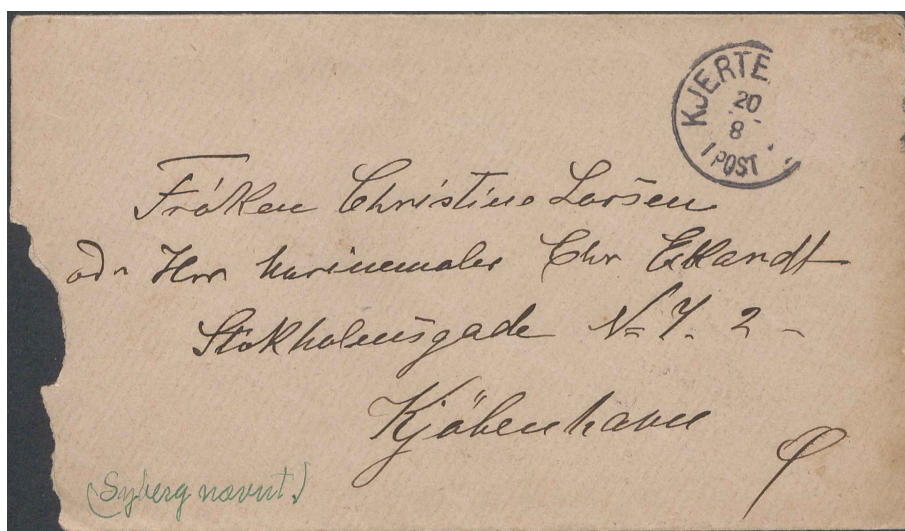 KJERTE
20
8
1 POST
Fröken Christine Larsen
adr Herr marinemaler Chr Eckardt
Stokholmsgade No 7. 2 -
Kjöbenhavn
Ø
(Syberg nævnt!)